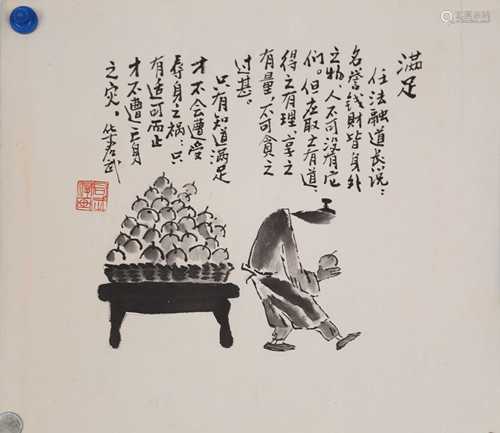 滿足
任法融道长说：
名誉钱財皆身外
之物，人不可没有它
们。但应取之有道、
得之有理、享之
有量，不可贪之
过甚。
只有知道满足
才不会遭受
辱身之祸：只
有适可而止
才不遭亡身
之灾。华君武